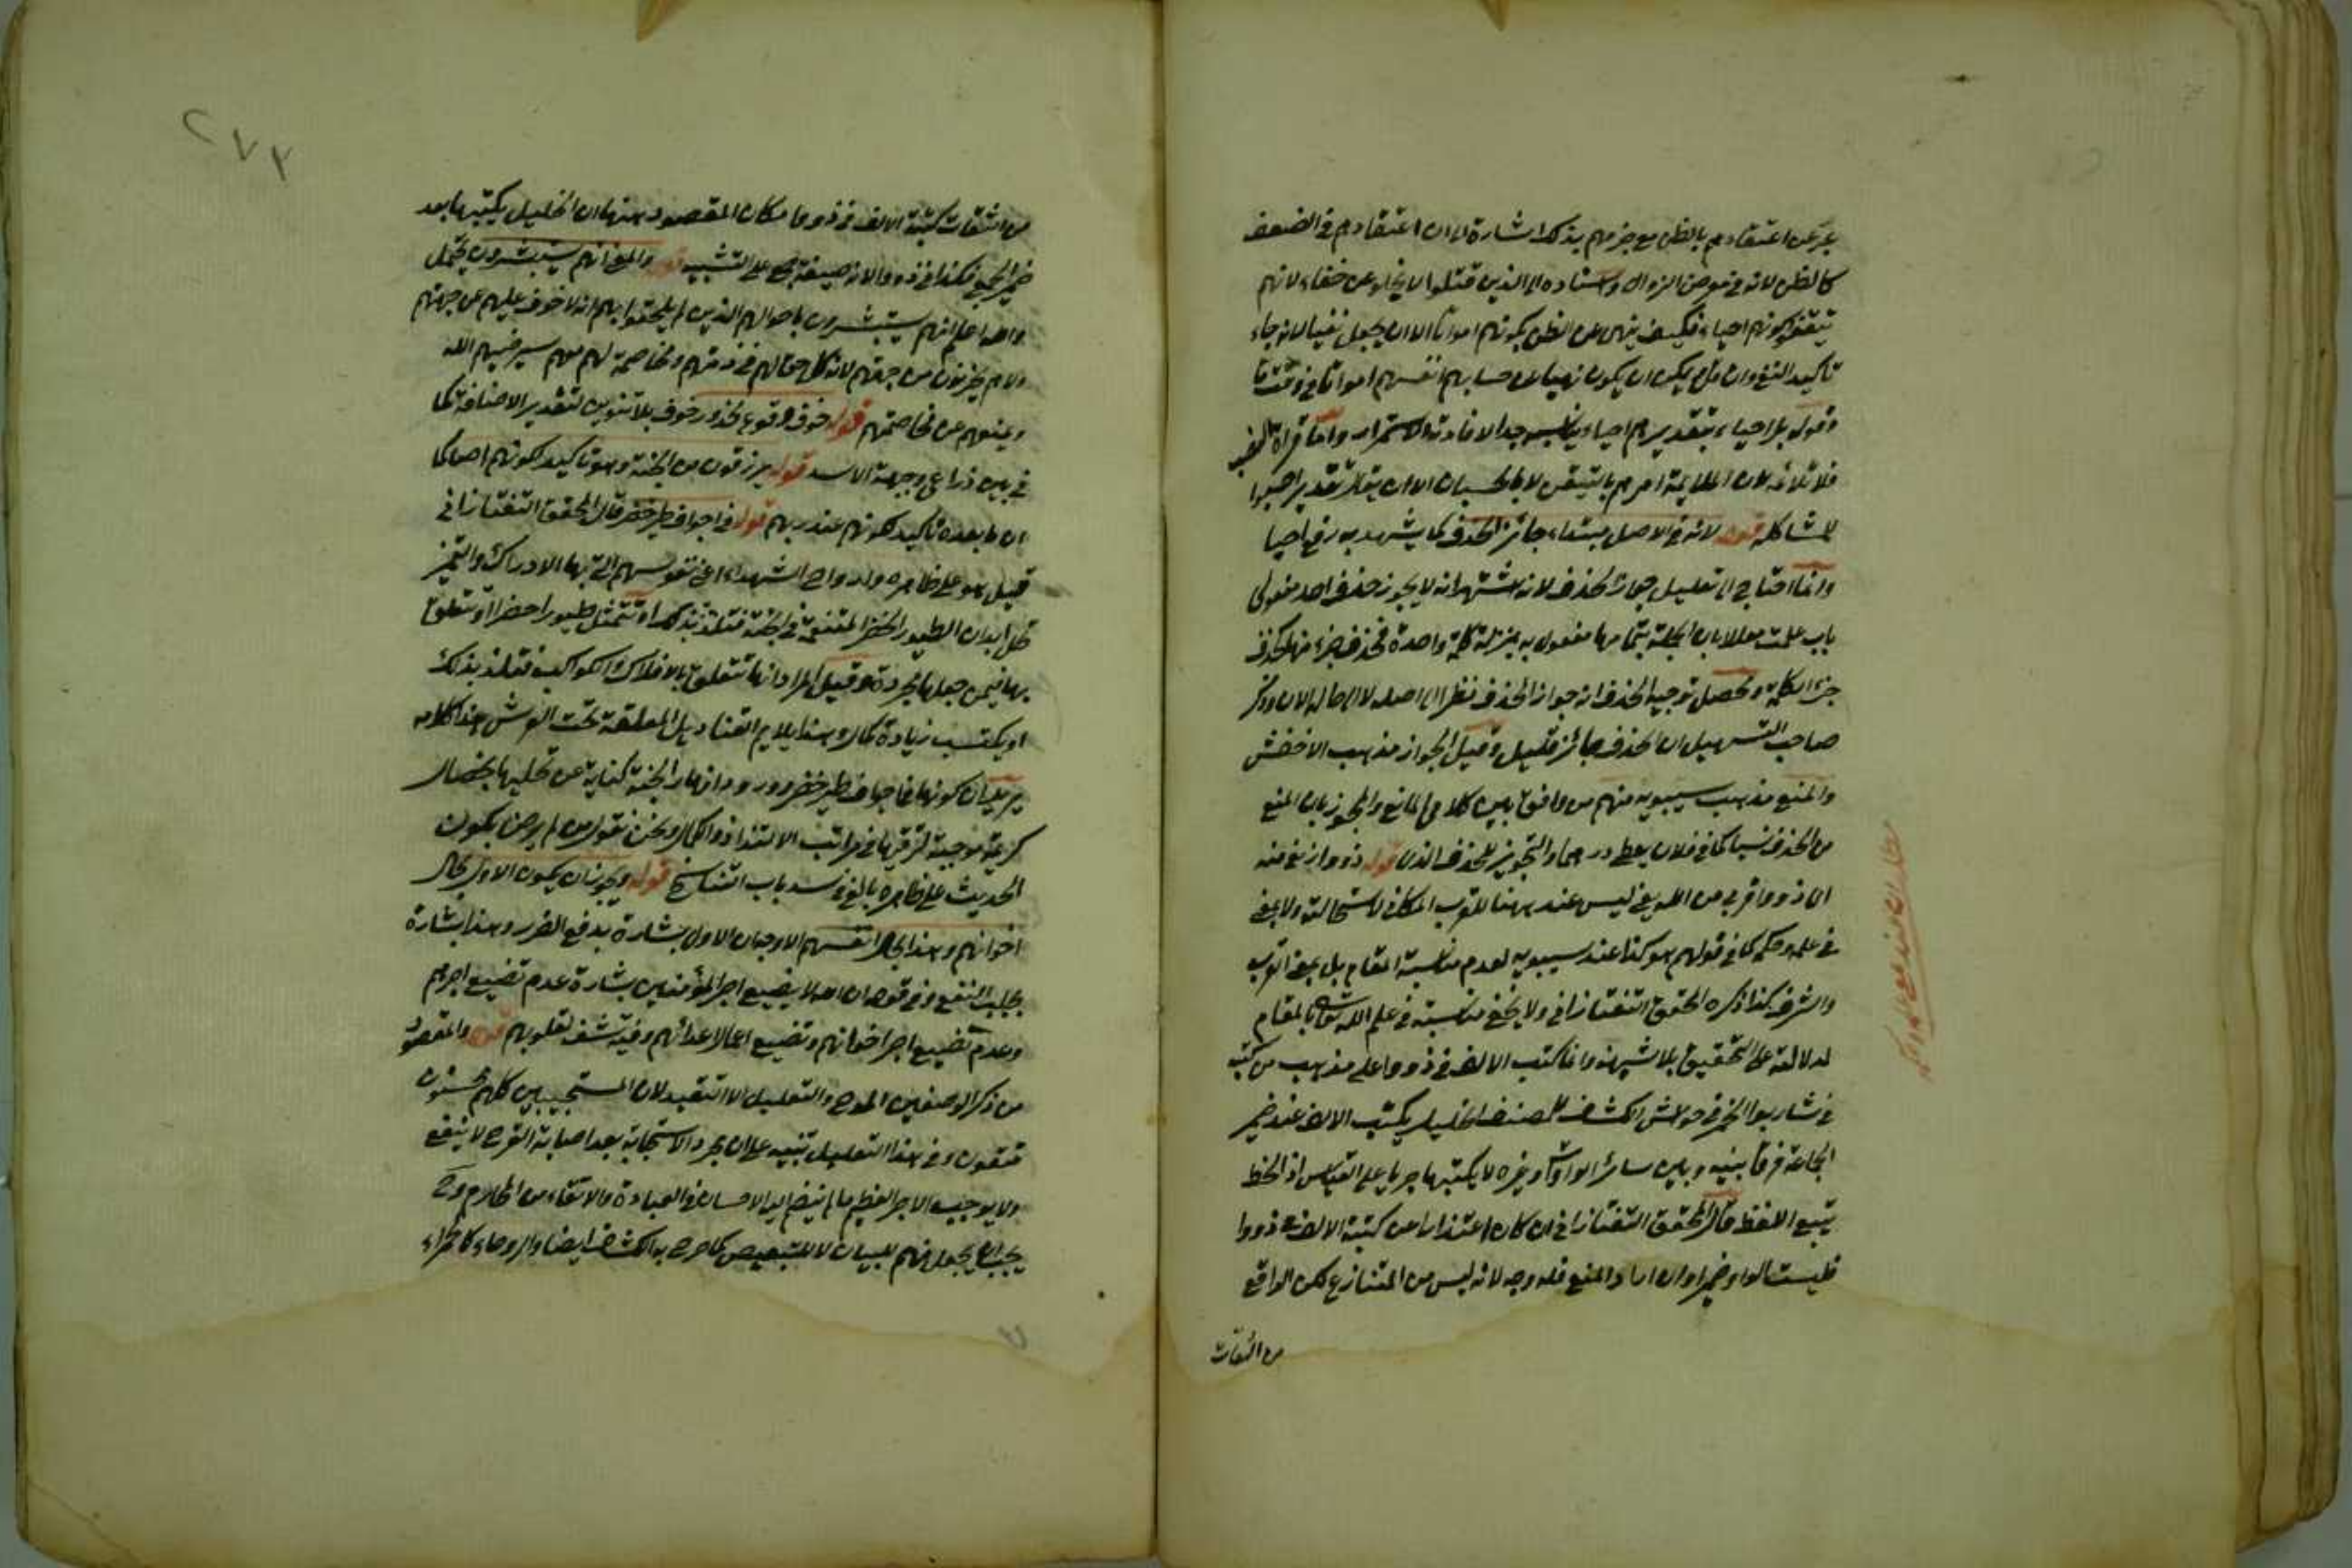 عبر عن اعتقادهم بالظن مع جزمهم بذلك اشارة الى ان اعتقادهم في الضعف
كالظن لانه في معرض الزوال واسناده الى الذين قتلوا لا يخلو عن خفاء لانهم
تيقنوا كونهم احياء فكيف ينهى عن الظن بكونهم امواتا الا ان يجعل نفيا لانه جاء
تاكيد النفي وان قل يمكن ان يكون نهيا عن حسابهم انفسهم امواتا في وقت ما
وقوله بل احياء بتقدير هم احياء يناسب جدا لافادته الاستمرار واما قراءة النصب
فلا تلائمه لان الملايمة امرهم بالتيقن لا بالحسبان الا ان يقال تقدير احسبوا
لمشاكلة قوله لانه في الاصل مبتداء جائز الحذف كما يشهد به رفع احيا
وانما احتاج الى تعليل جواز الحذف لانه اشتهر انه لا يجوز حذف احد مفعولي
باب علمت معللا بان الجملة بتمامها مفعول به بمنزلة كلمة واحدة فحذف جزء منها كحذف
جزء الكلمة ومحصل توجيه الحذف انه جواز الحذف نظرا الى اصله لا الى حاله الان وذكر
صاحب التسهيل ان الحذف جائز قليل وقيل الجواز مذهب الاخفش
والمنع مذهب سيبويه منهم من وافق بين كلامي المانع والمجوز بان المنع
من الحذف نسيا كما في فلان يعطى درهما والتجويز للحذف الذى قوله ذووا زلفى منه
اى ذووا قربى من الله يعنى ليس عند ههنا للقرب المكاني لاستحالته ولا بمعنى
في علمه وحكمه كما في قولهم هو كذا عند سيبويه لعدم مناسبة المقام بل بمعنى القرب
والشرف كذا ذكره المحقق التفتازانى ولا يخفى مناسبته في علم الله تعالى بالمقام
لدلالته على التحقيق بلا شبهة وانما كتب الالف في ذووا على مذهب من كتبه
في شاربوا الخمر في حواشى الكشاف للمصنف الخليل يكتب الالف عند ضمير
الجماعة فرقا بينه وبين سائر الواوات وغيره لا يكتبها جريا على القياس اذ الخط
يتبع اللفظ قال المحقق التفتازانى ان كان اعتذارا عن كتبة الالف في ذووا
فليست الواو ضميرا وان اراد المنع فله وجه لانه ليس من المتنازع لكن الواقع
من الثقات
من الثقات كتبة الالف في ذووا فكان المقصود منها ان الخليل يكتبها بعد
ضمير الجمع فكذا في ذووا لانه صيغة جمع على التشبيه قوله والمعنى انهم يستبشرون يحتمل
والله اعلم انهم يستبشرون باحوال الذين لم يلحقوا بهم انه لا خوف عليهم من جهتهم
ولا هم يحزنون من جهتهم لانه كل حق لهم في ذمتهم ومخاصمة لهم معهم سيرضيهم الله
ويمنعهم عن مخاصمتهم قوله خوف وقوع محذور خوف بلا تنوين لتقدير الاضافة كما
في بين ذراعي وجبهة الاسد قوله يرزقون من الجنة وهو تاكيد لكونهم احياء كما
ان ما بعده تاكيد لكونهم عند ربهم قوله في اجواف طير خضر قال المحقق التفتازانى
قيل هو على ظاهره ولارواح الشهداء اعنى نفوسهم التى بها الادراك والتميز
تحل ابدان الطيور الخضر المتنعمة في الجنة فتلتذ بذلك او تتمثل طيورا خضرا او تتعلق
بها فيمن جعلها مجردة وقيل المراد انها تتعلق بالافلاك والكواكب فتلتذ بذلك
او يكتسب زيادة كمال وهذا يلايم القناديل المعلقة تحت العرش هذا كلامه
يريد ان كونها في اجواف طير خضر وورود انهار الجنة كناية عن تحليها بخصال
كريمة موجبة لترقيها في مراتب الالتذاذ والكمال ونحن نقول من لم يرض بكون
الحديث على ظاهره بالغ في سد باب التناسخ قوله ويجوز ان يكون الاول بحال
اخوانهم وهذا بحال انفسهم الاوجه ان الاول بشارة بدفع الضرر وهذا بشارة
بجلب النفع وفي قوله ان الله لا يضيع اجر المؤمنين بشارة عدم تضييع اجرهم
وعدم تضييع اجر اخوانهم وتضييع اعمال اعدائهم وفيه شفاء لقلوبهم قوله والمقصود
من ذكر الوصفين المدح والتعليل لا التقييد لان المستجيبين كلهم محسنون
متقون وفي هذا التعليل تنبيه على ان مجرد الاستجابة بعد اصابة القرح لا ينفع
ولا يوجب الاجر العظيم ما لم ينضم اليه الاحسان في العبادة والاتقاء من المحارم وح
يجب ان يجعل منهم للبيان لا للتبعيض كما صرح به الكشاف ايضا والروحاء كالحمراء